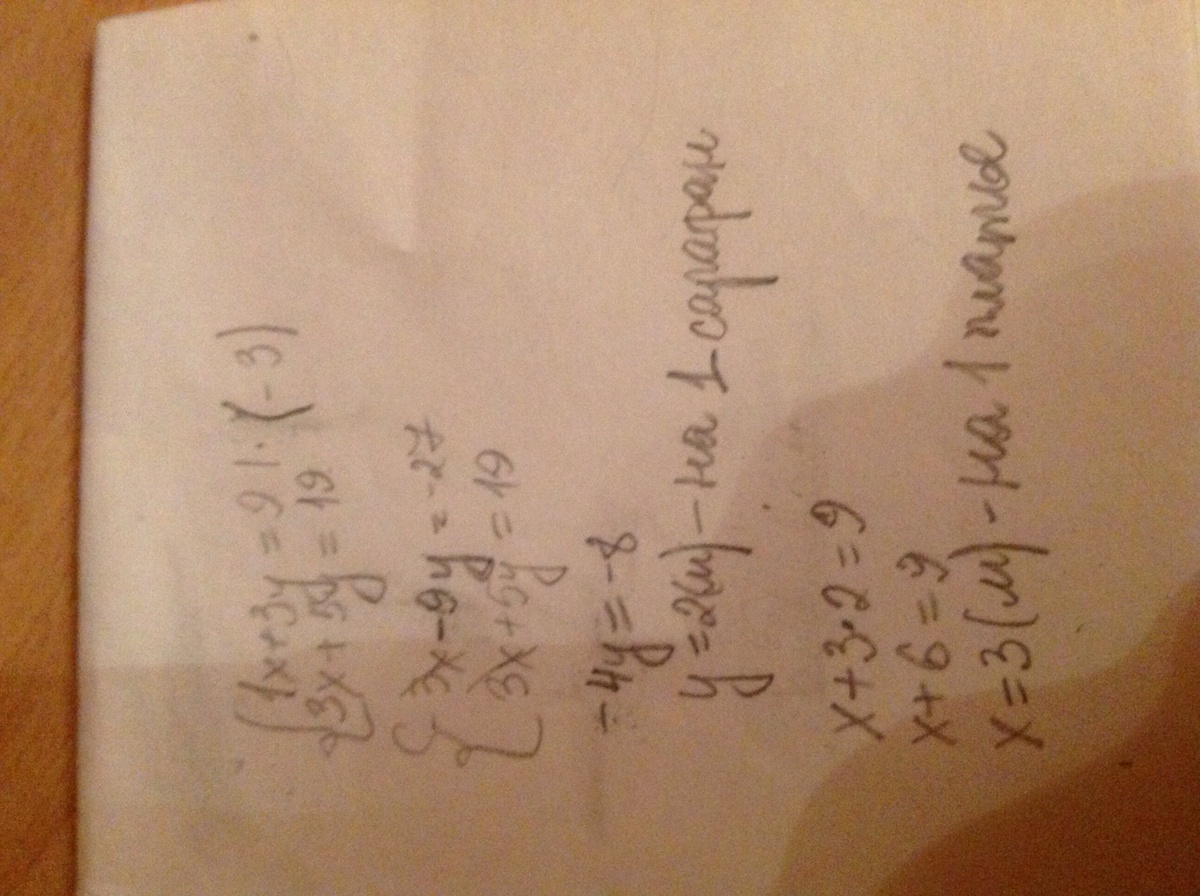 { 1x+3y=9 |·(-3)
3x+5y=19
{ -3x-9y=-27
3x+5y=19
-4y=-8
y=2(м)-на 1 сарафан
x+3·2=9
x+6=9
x=3(м)-на 1 платье